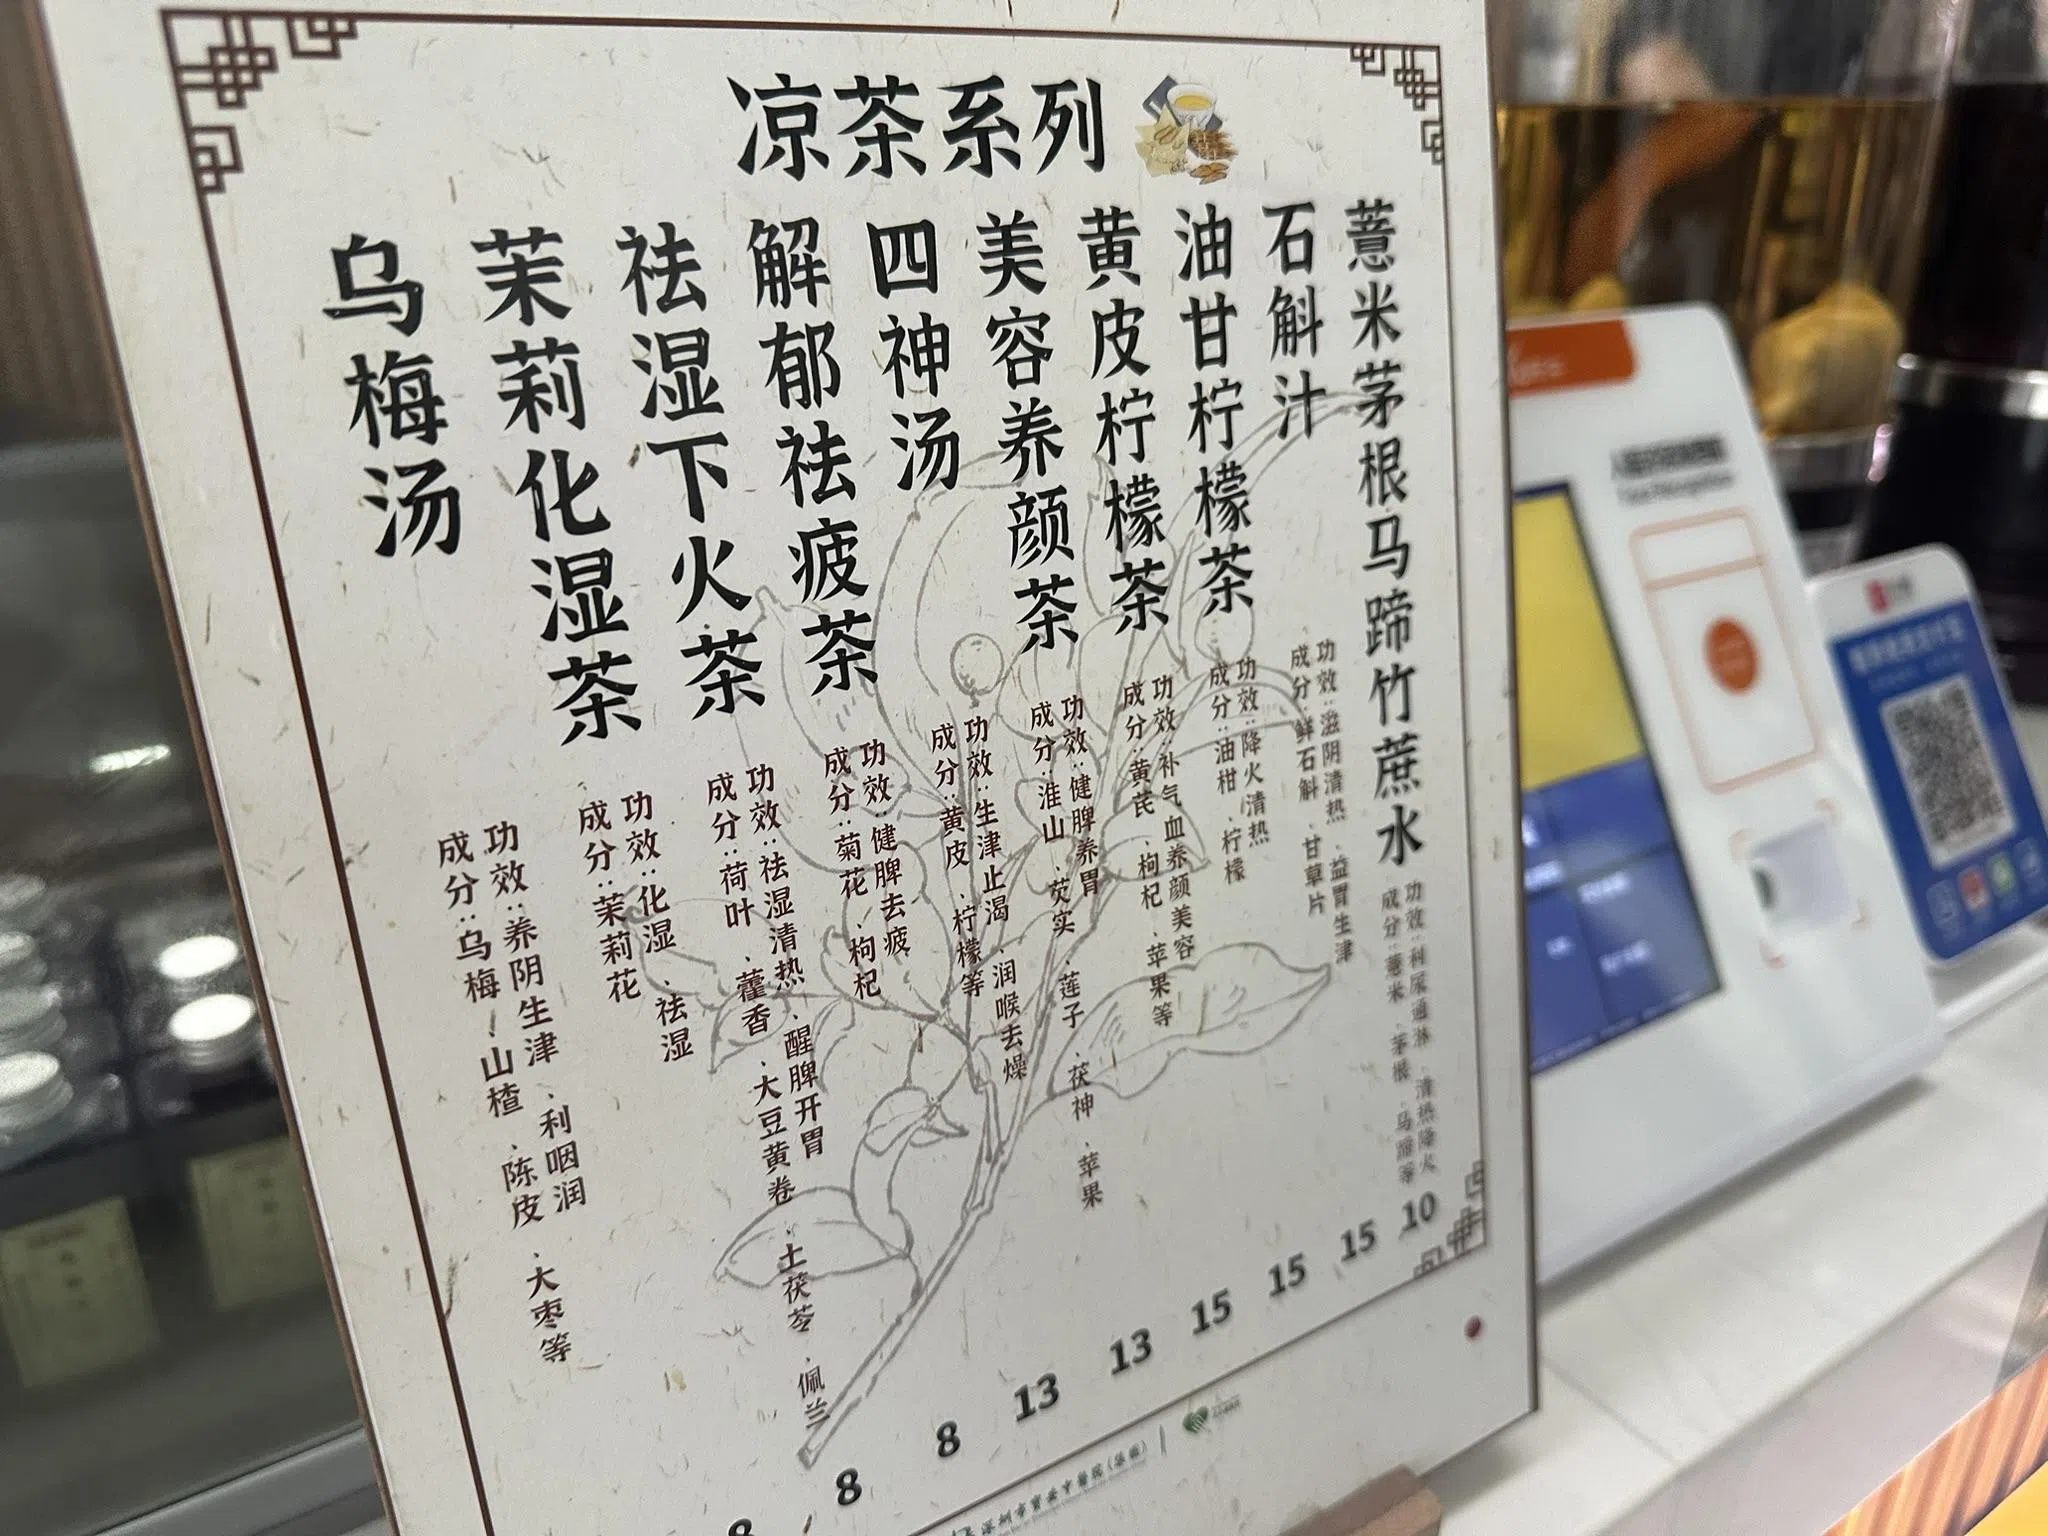 凉茶系列
薏米茅根马蹄竹蔗水
功效:利尿通淋、清热降火
成分:薏米、茅根、马蹄等
10
石斛汁
功效:滋阴清热、益胃生津
成分:鲜石斛、甘草片
15
油甘柠檬茶
功效:降火清热
成分:油柑、柠檬
15
黄皮柠檬茶
功效:补气血养颜美容
成分:黄芪、枸杞、苹果等
15
美容养颜茶
功效:健脾养胃
成分:淮山、芡实、莲子、茯神、苹果
13
四神汤
功效:生津止渴、润喉去燥
成分:黄皮、柠檬等
13
解郁祛疲茶
功效:健脾去疲
成分:菊花、枸杞
8
祛湿下火茶
功效:祛湿清热、醒脾开胃
成分:荷叶、藿香、大豆黄卷、土茯苓、佩兰
8
茉莉化湿茶
功效:化湿、祛湿
成分:茉莉花
8
乌梅汤
功效:养阴生津、利咽润
成分:乌梅、山楂、陈皮、大枣等
深圳市宝安中医院(集团)